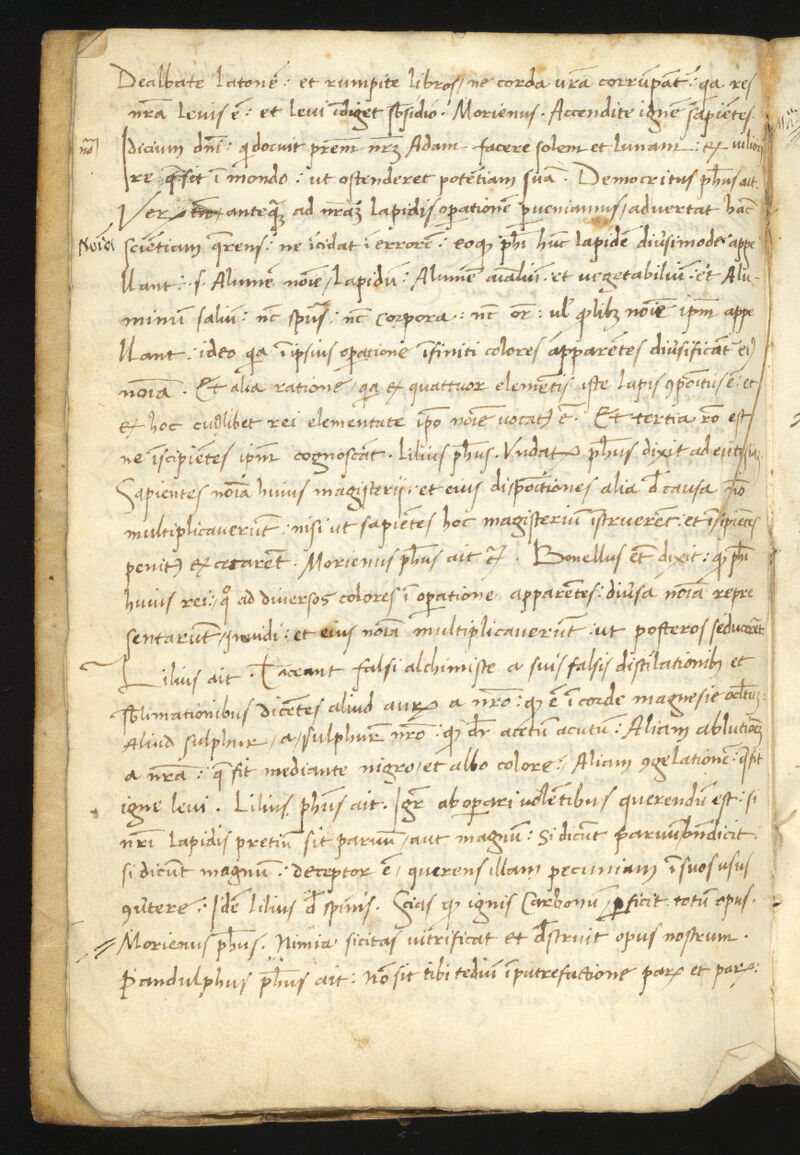 Dealbate latonē: et rumpite libros, ne corda ūra corrūpāt: qa res
nr̄a levis ē: et levi īdiget sb̄sidio. Morienus. Accendite ignē sāpiētes.
Idicium dn̄i: qi docuit prēm nr̄ʒ Adam facere solem et lunam: ex viliori
nō
re q̄ sit ī mondo: ut ostenderet potētiam suā. Democritus ph̄us ait.
anteq̄ʒ ad nr̄aʒ lapidis op̄ationē pveniamus, advertat hāc
Noīa
sciētiam q̄rens: ne īcidat ī errorē: eoqꝫ ph̄i hūc lapidē div̄simode appe
llant: s. Alumē noīe, lapidū: Alumē aīaliū: et vegetabiliū: et Alu-
minū saliū: nc̄ spūs: nc̄ corpora: nc̄ or̄: ul̓ qlibꝫ noīē ip̄m appe
llant: ideo qa īipsius op̄atione īfiniti colores apparētes div̄sificāt eiꝰ
noīā. Et alia ratione, qa ex quattuor elemētis iste lapis ꝯpoītus ē: et
ex hoc cuilibet rei elementate ip̄o noīe vocatꝰ ē. Et tertia rō est
ne īscipiētes ip̄m cognoscāt. Lilius ph̄us. ph̄us dixit ad
Sapientes noīa huius magisterij: et eius dispoītiones alia đ causa nō
multiplicaverūt: nisi ut sapiētes hoc magisteriū īstruerēt: et īsipiētes
penitꝰ excecarēt. Morienus ph̄us ait. Bonellus ēt dixit: qꝫ ph̄i
huius rei: qͦ ad diversos colores ī op̄atione apparētes: div̄sa noīā repre
sentarūt, īnvidi: et eius noīā multiplicaverūt: ut posteros seducerēt
Lilius ait. Taceant falsi alchimiste a suis falsis distilationibꝰ et
sb̄limationibus dicētes aliud auꝝ a nr̄o: qꝫ ē ī corde magnesie
Aliud sulphur, a, sulphur̄ nr̄o: qꝫ dr̄ acetū acutū: Aliam ablutionē
a nr̄ā: q̄ fit mediante nigro, et albo colore: Aliam ꝯgelationē: q̄ fit
igne levi. Lilius ph̄us ait. Igr̄ ab op̄ari volētibus querendū est: si
nr̄i lapidis pretiū sit parvū, aut magnū: Si dicūt parvū bn̄ dicit:
si dicūt magnū: deceptor ē, querens illam pecuniam ī suos usus
ꝯv̄tere: Idē Lilius đ spinis. Scias qꝫ ignis Carbonū, ꝑficit totū opus.
Morienus ph̄us. Nimia sicitas vitrificat et đstruit opus nostrum.
Pandulphus ph̄us ait: Nō sit tibi tediū ī putrefactione paꝝ et paꝝ: